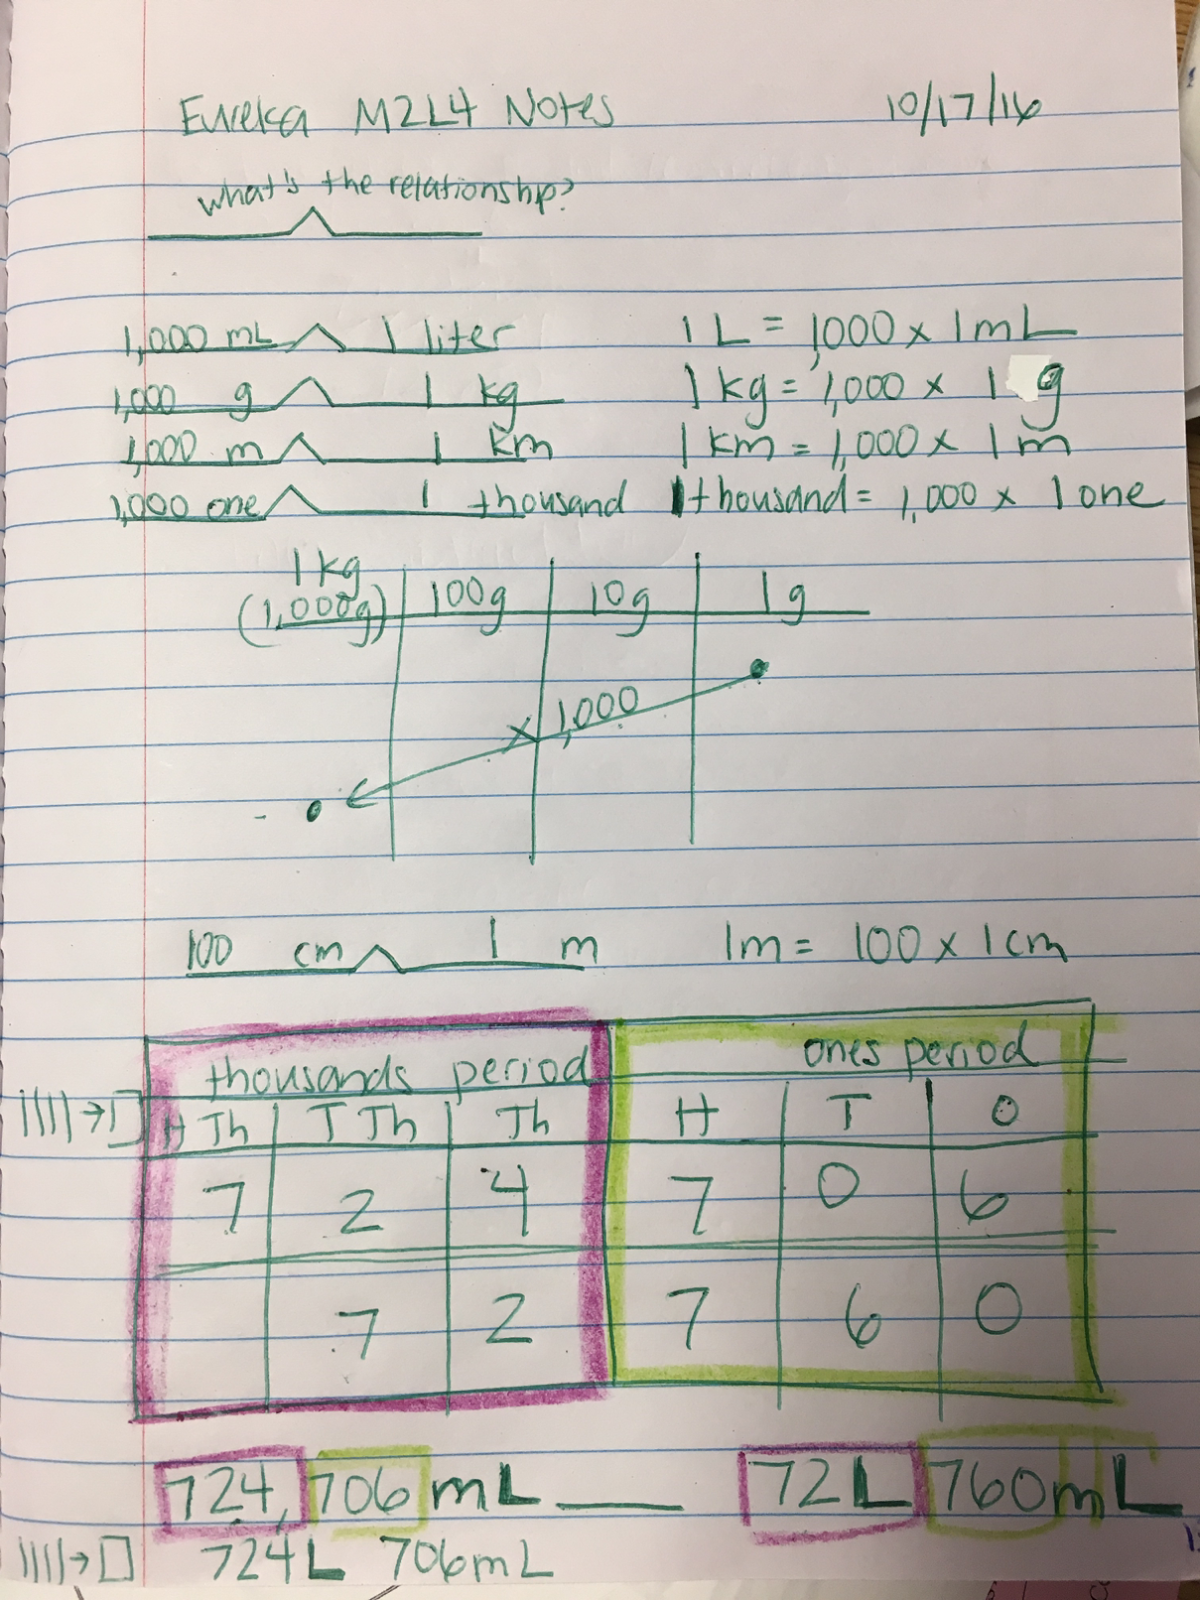 Eureka M2L4 Notes 10/17/16
what's the relationship?
1,000 mL 1 liter 1 L = 1,000 x 1mL
1,000 g 1 kg 1 kg = 1,000 x 1 g
1,000 m 1 km 1 km = 1,000 x 1 m
1,000 one 1 thousand 1 thousand = 1,000 x 1 one
1 kg
(1,000g) 100g 10g 1g
x 1,000
100 cm 1 m 1m = 100 x 1cm
thousands period ones period
H Th T Th Th H T O
7 2 4 7 0 6
7 2 7 6 0
724,706 mL 72L 760mL
724L 706mL